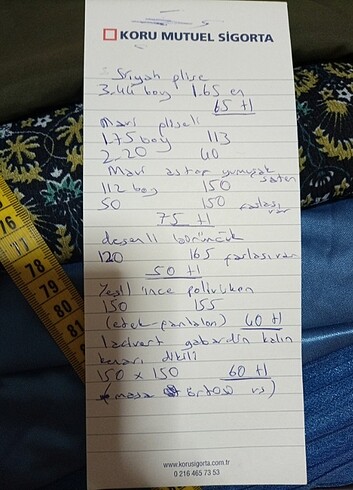 KORU MUTUEL SİGORTA
Siyah plise
3.44 boy 1.65 en
65 tl
Mavi pliseli
1.75 boy 113
2.20 40
Mavi astar yumuşak saten
112 boy 150
50 150 fazlası var
75 tl
desenli bürümcük
120 165 fazlası var
50 tl
Yeşil ince poliviskon
150 155
(etek pantalon) 40 tl
Ladvert gabardin kalın
kenarı dikili
150 x 150 60 tl
(masa örtüsü vs)
www.korusigorta.com.tr
0 216 465 73 53
76
77
78
79
80
81